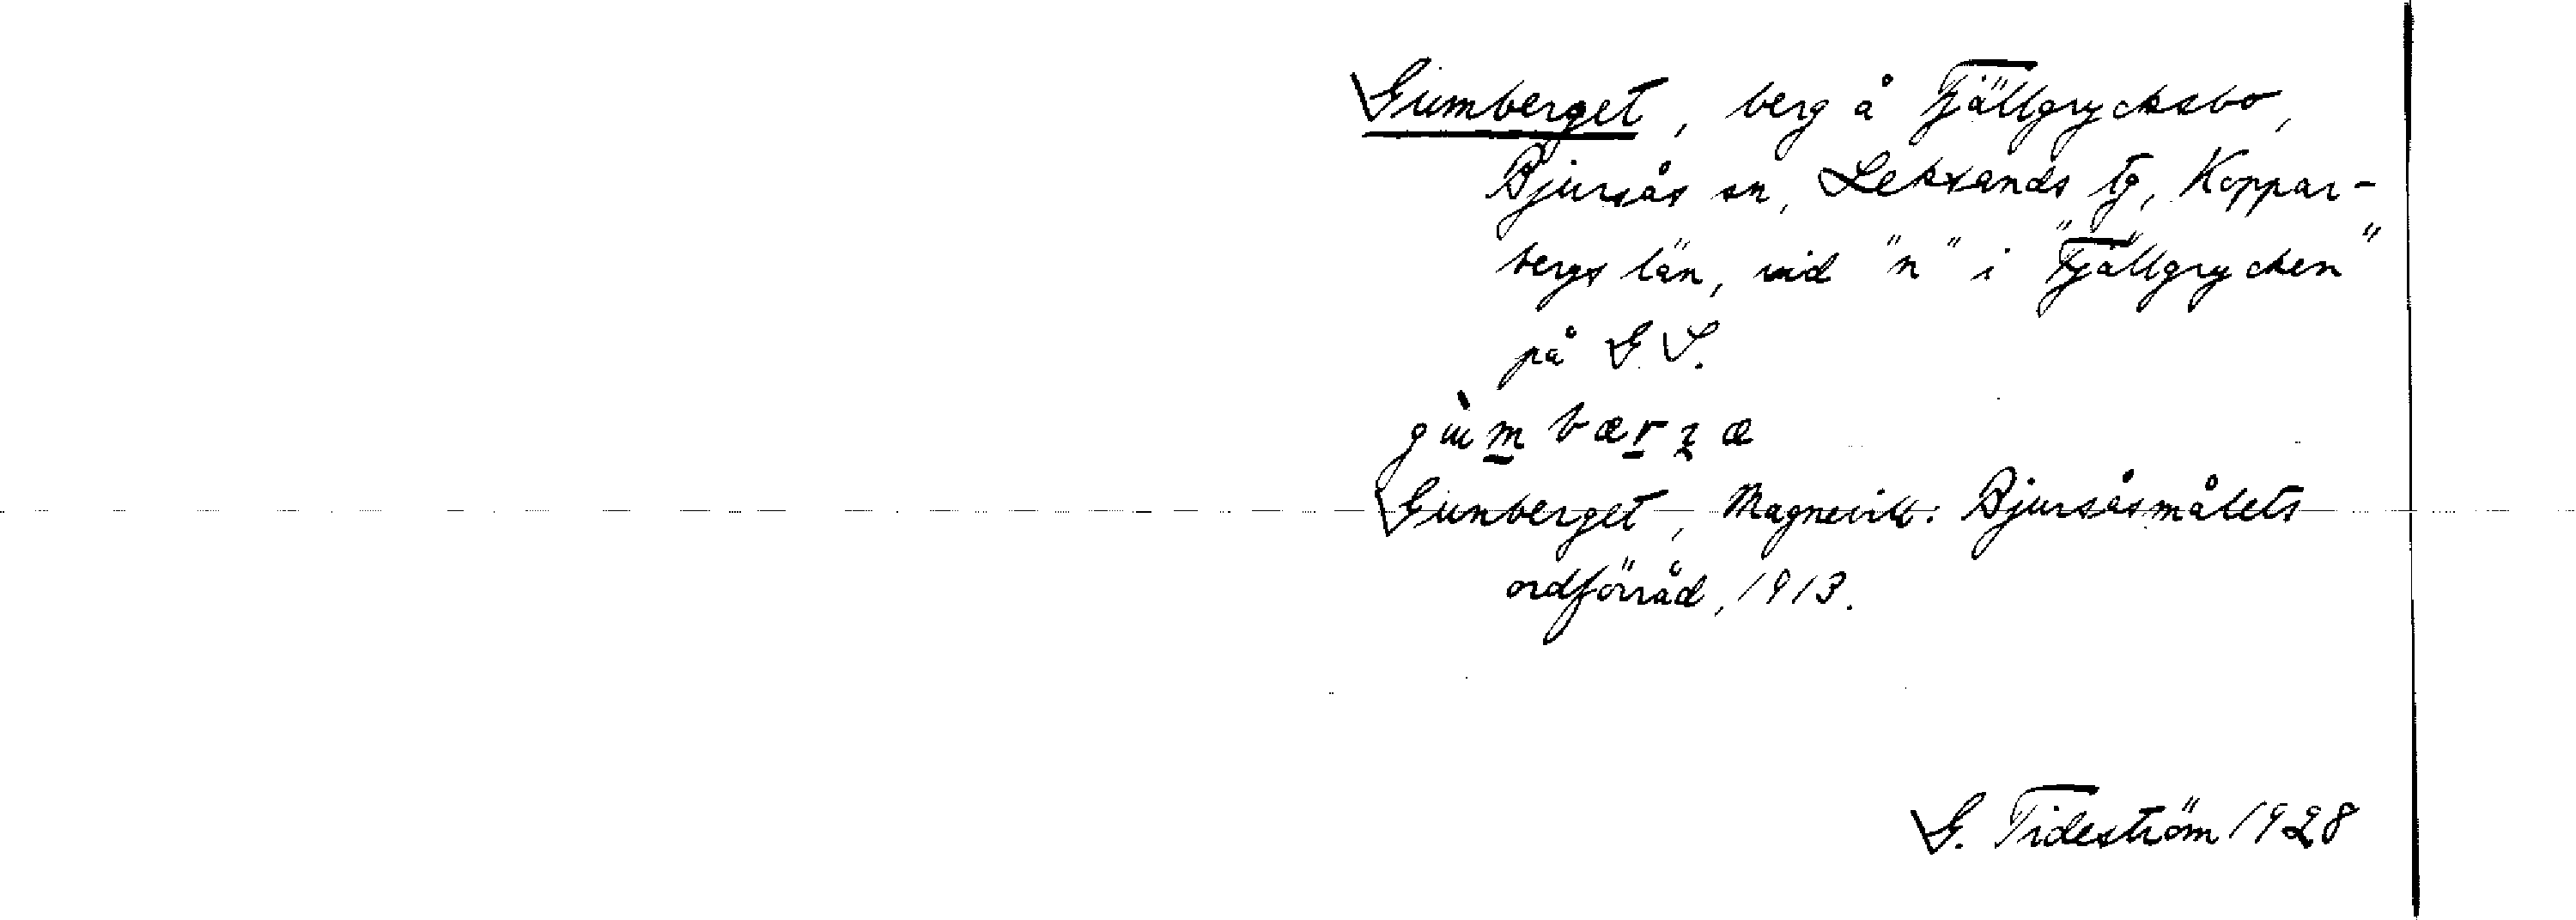 Gumberget, berg å Fjällgrycksbo,
Bjursås sn, Leksands tg, Koppar-
bergs län, vid "n" i "Fjällgrycken"
på G.S.
Gunberget, Magnevill: Bjursåsmålets
ordförråd, 1913.
G. Tideström 1928